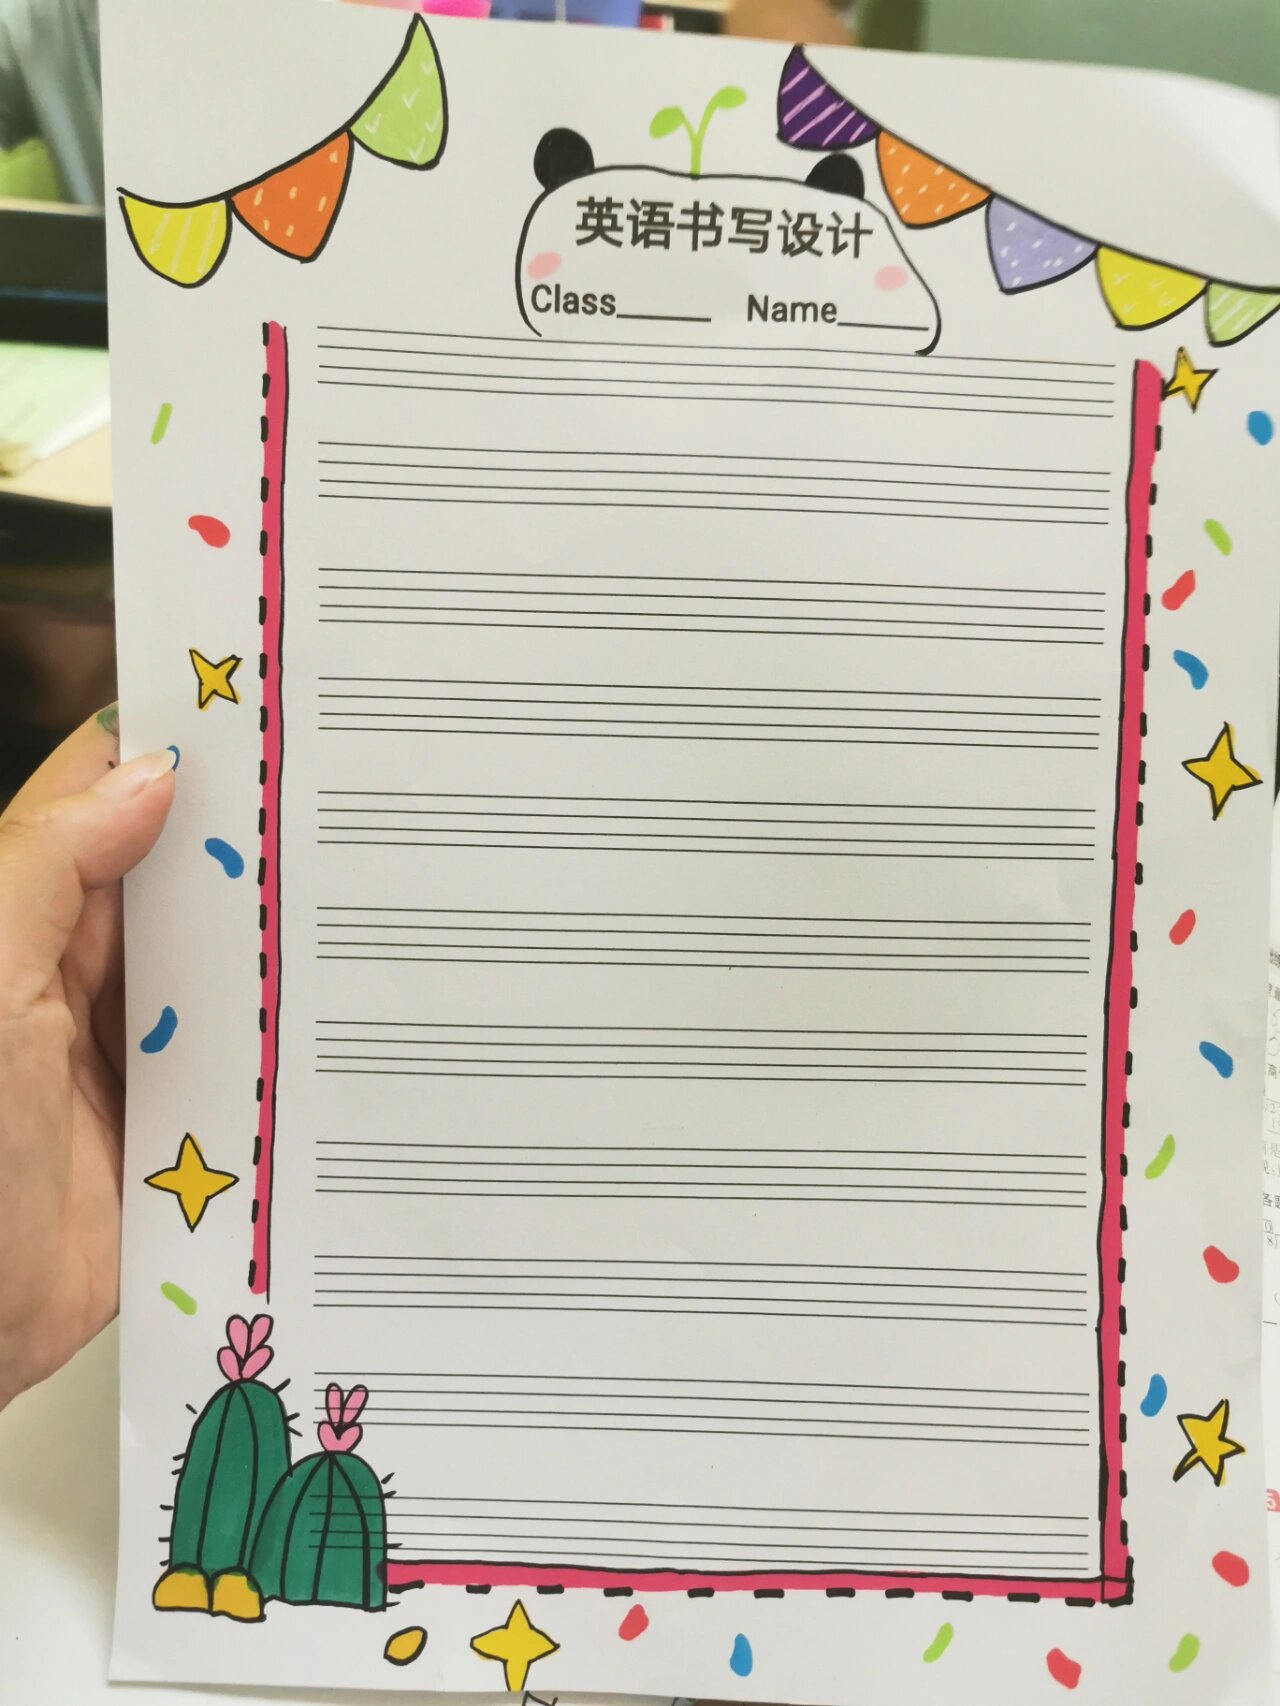 英语书写设计
Class_____ Name_____